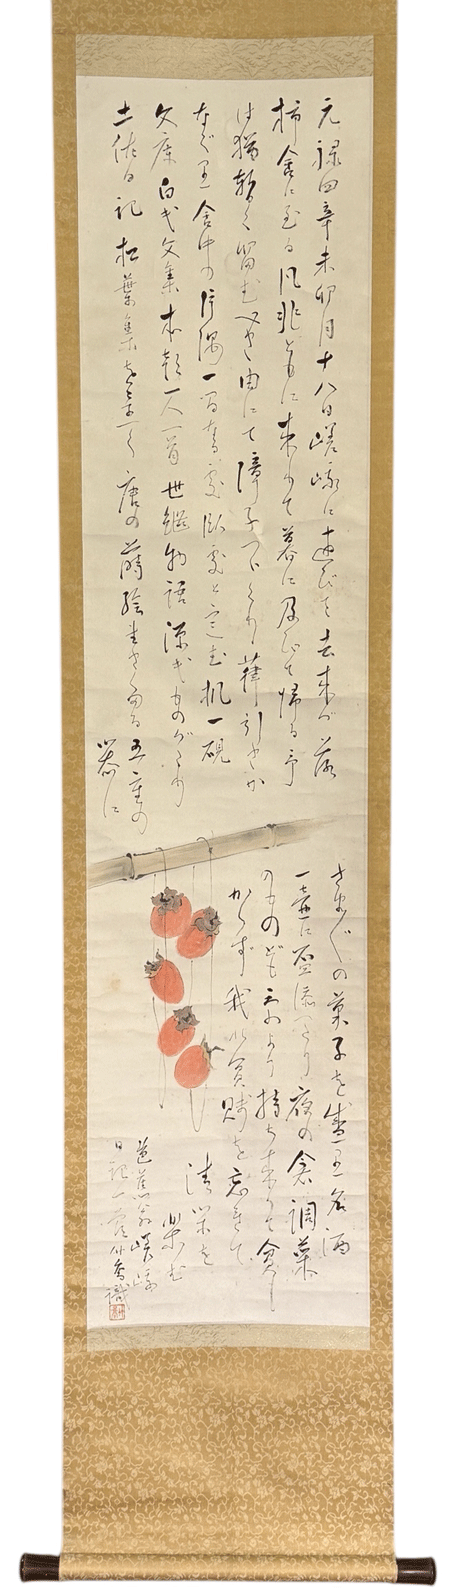 元禄四辛未卯月十八日嵯峨に遊びて去来が落
柿舎に至る凡兆ともに来りて暮に及びて帰る予
は猶暫く留むべき由にて障子つづくり葎引きか
なぐり舎中の片隅一間なる処臥処と定む机一硯
文庫白氏文集本朝一人一首世継物語源氏ものがたり
土佐日記松葉集を置く唐の蒔絵書きたる五重の
器に
さまざまの菓子を盛り名酒
一壺に盃添へたり夜の衾調菜
のものども京より持ち来りて貧し
からず我が貧賤を忘れて
清閑を
楽む
芭蕉翁嵯峨
日記一節